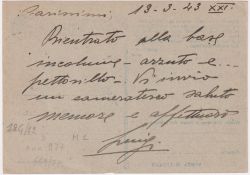 Carissimi 13-3-43 XXI.
Rientrato alla base
incolume - azzuto e...
pettorillo - Vi invio
un cameratesco saluto
memore e affettuoso
Luigi